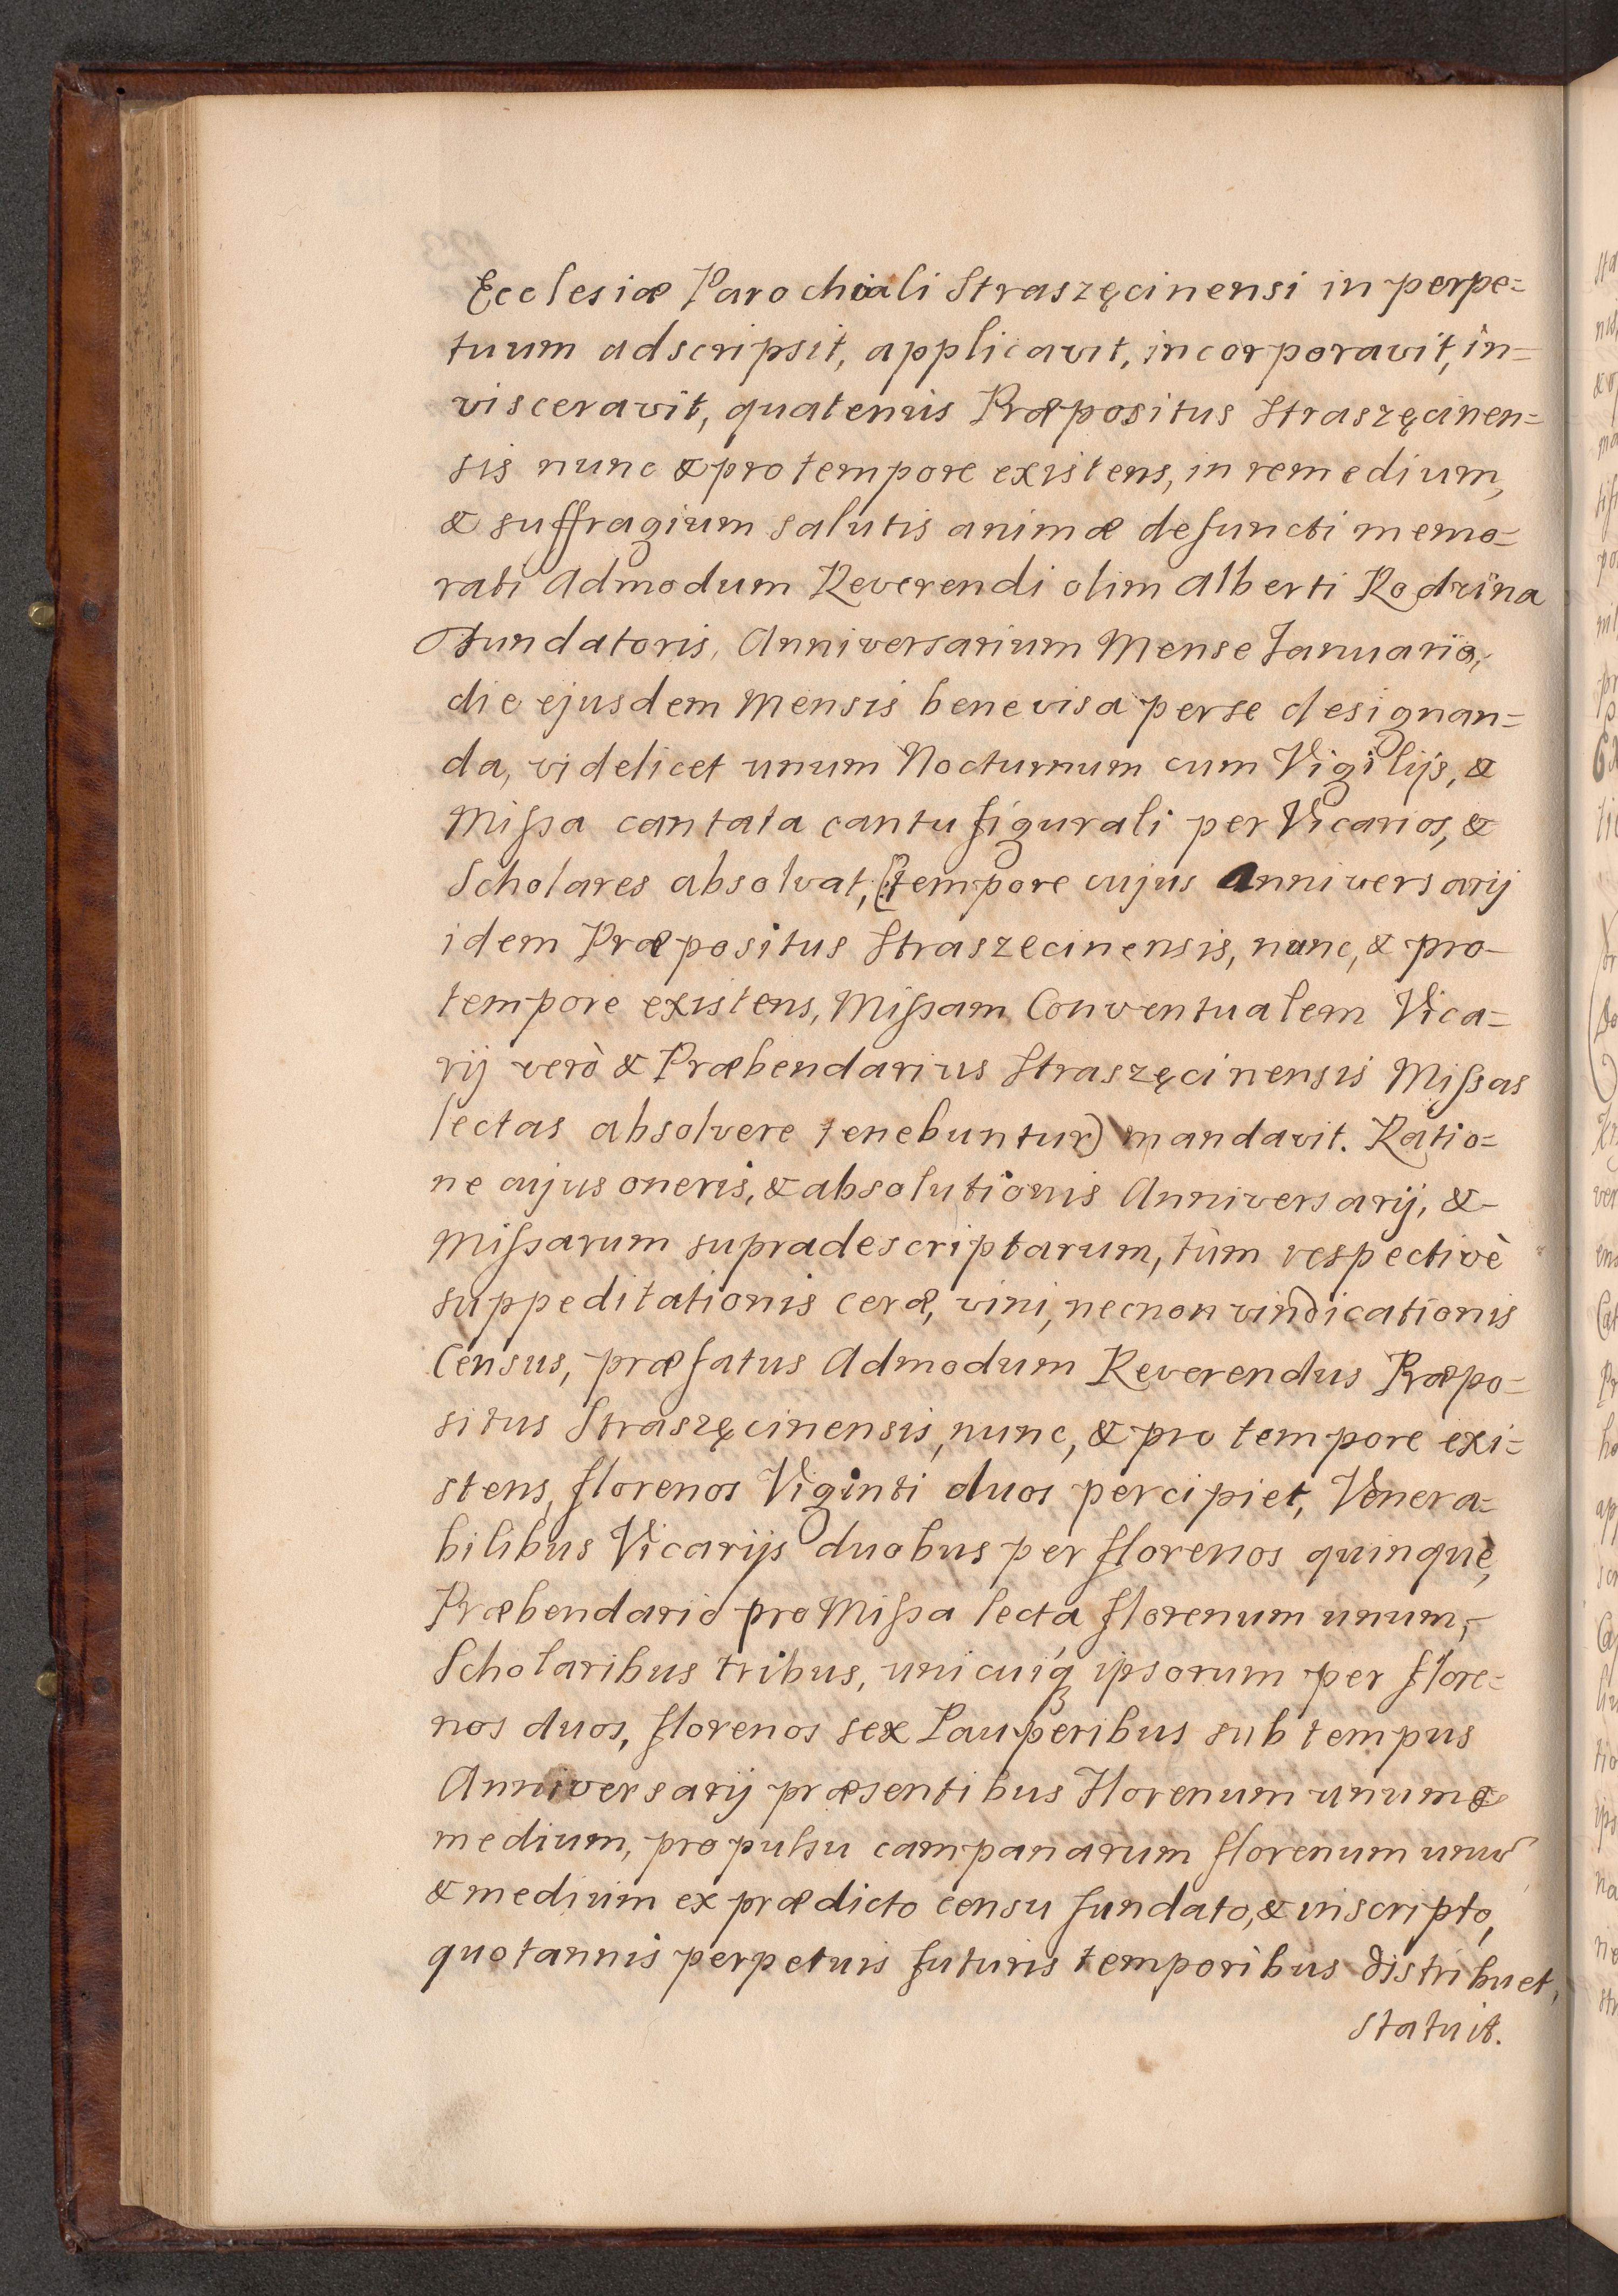 Ecclesiæ Parochiali Straszęcinensi in perpe=
tuum adscripsit, applicavit, incorporavit, in=
visceravit, quatenus Præpositus Straszęcinen=
sis nunc & pro tempore existens, in remedium,
& suffragium salutis animæ defuncti memo=
rati Admodum Reverendi olim Alberti Rodzina
Fundatoris, Anniversarium Mense Januario,
die ejusdem Mensis benevisa per se designan=
da, videlicet unum Nocturnum cum Vigilijs, &
Missa cantata cantu figurali per Vicarios, &
Scholares absolvat, (tempore cujus Anniversarij
idem Præpositus Straszecinensis, nunc, & pro-
tempore existens, Missam Conventualem Vica=
rij verò & Præbendarius Straszęcinensis Missas
lectas absolvere tenebuntur) mandavit. Ratio=
ne cujus oneris, & absolutionis Anniversarij, &
Missarum supradescriptarum, tùm respectivè
suppeditationis ceræ, vini, necnon vindicationis
Census, præfatus Admodum Reverendus Præpo=
situs Straszęcinensis, nunc, & pro tempore exi=
stens, florenos Viginti duos percipiet, Venera=
bilibus Vicarijs duobus per florenos quinque,
Præbendario pro Missa lecta florenum unum,
Scholaribus tribus, unicuiq́ ipsorum per flore=
nos duos, florenos sex Pauperibus sub tempus
Anniversarij præsentibus Florenum unum &
medium, pro pulsu campanarum florenum unũ
& medium ex prædicto censu fundato, & inscripto,
quotannis perpetuis futuris temporibus distribuet,
statuit.